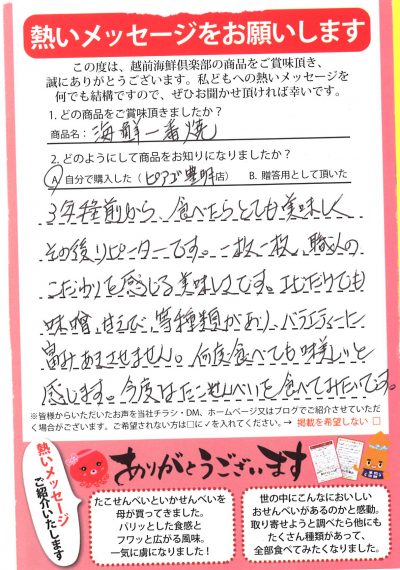 熱いメッセージをお願いします
この度は、越前海鮮倶楽部の商品をご賞味頂き、
誠にありがとうございます。私どもへの熱いメッセージを
何でも結構ですので、ぜひお聞かせ頂ければ幸いです。
1. どの商品をご賞味頂きましたか?
商品名: 海鮮一番焼
2. どのようにして商品をお知りになりましたか?
A 自分で購入した(ピアゴ豊明店) B. 贈答用として頂いた
3年程前から、食べたらとても美味しく
その後リピーターです。一枚一枚、職人の
こだわりを感じる美味しさです。エビだけでも
味噌、甘えび、等種類があり、バラエティーに
富みあきませません。何度食べても味美しいと
感じます。今度はたこせんべいを食べてみたいです。
※皆様からいただいたお声を当社チラシ・DM、ホームページ又はブログでご紹介させていただ
く場合がございます。ご希望されない方は□に✓を入れてください。→ 掲載を希望しない □
ありがとうございます
熱いメッセージ
ご紹介いたします
たこせんべいといかせんべいを
母が買ってきました。
パリッとした食感と
フワッと広がる風味。
一気に虜になりました!
世の中にこんなにおいしい
おせんべいがあるのかと感動。
取り寄せようと調べたら他にも
たくさん種類があって、
全部食べてみたくなりました。